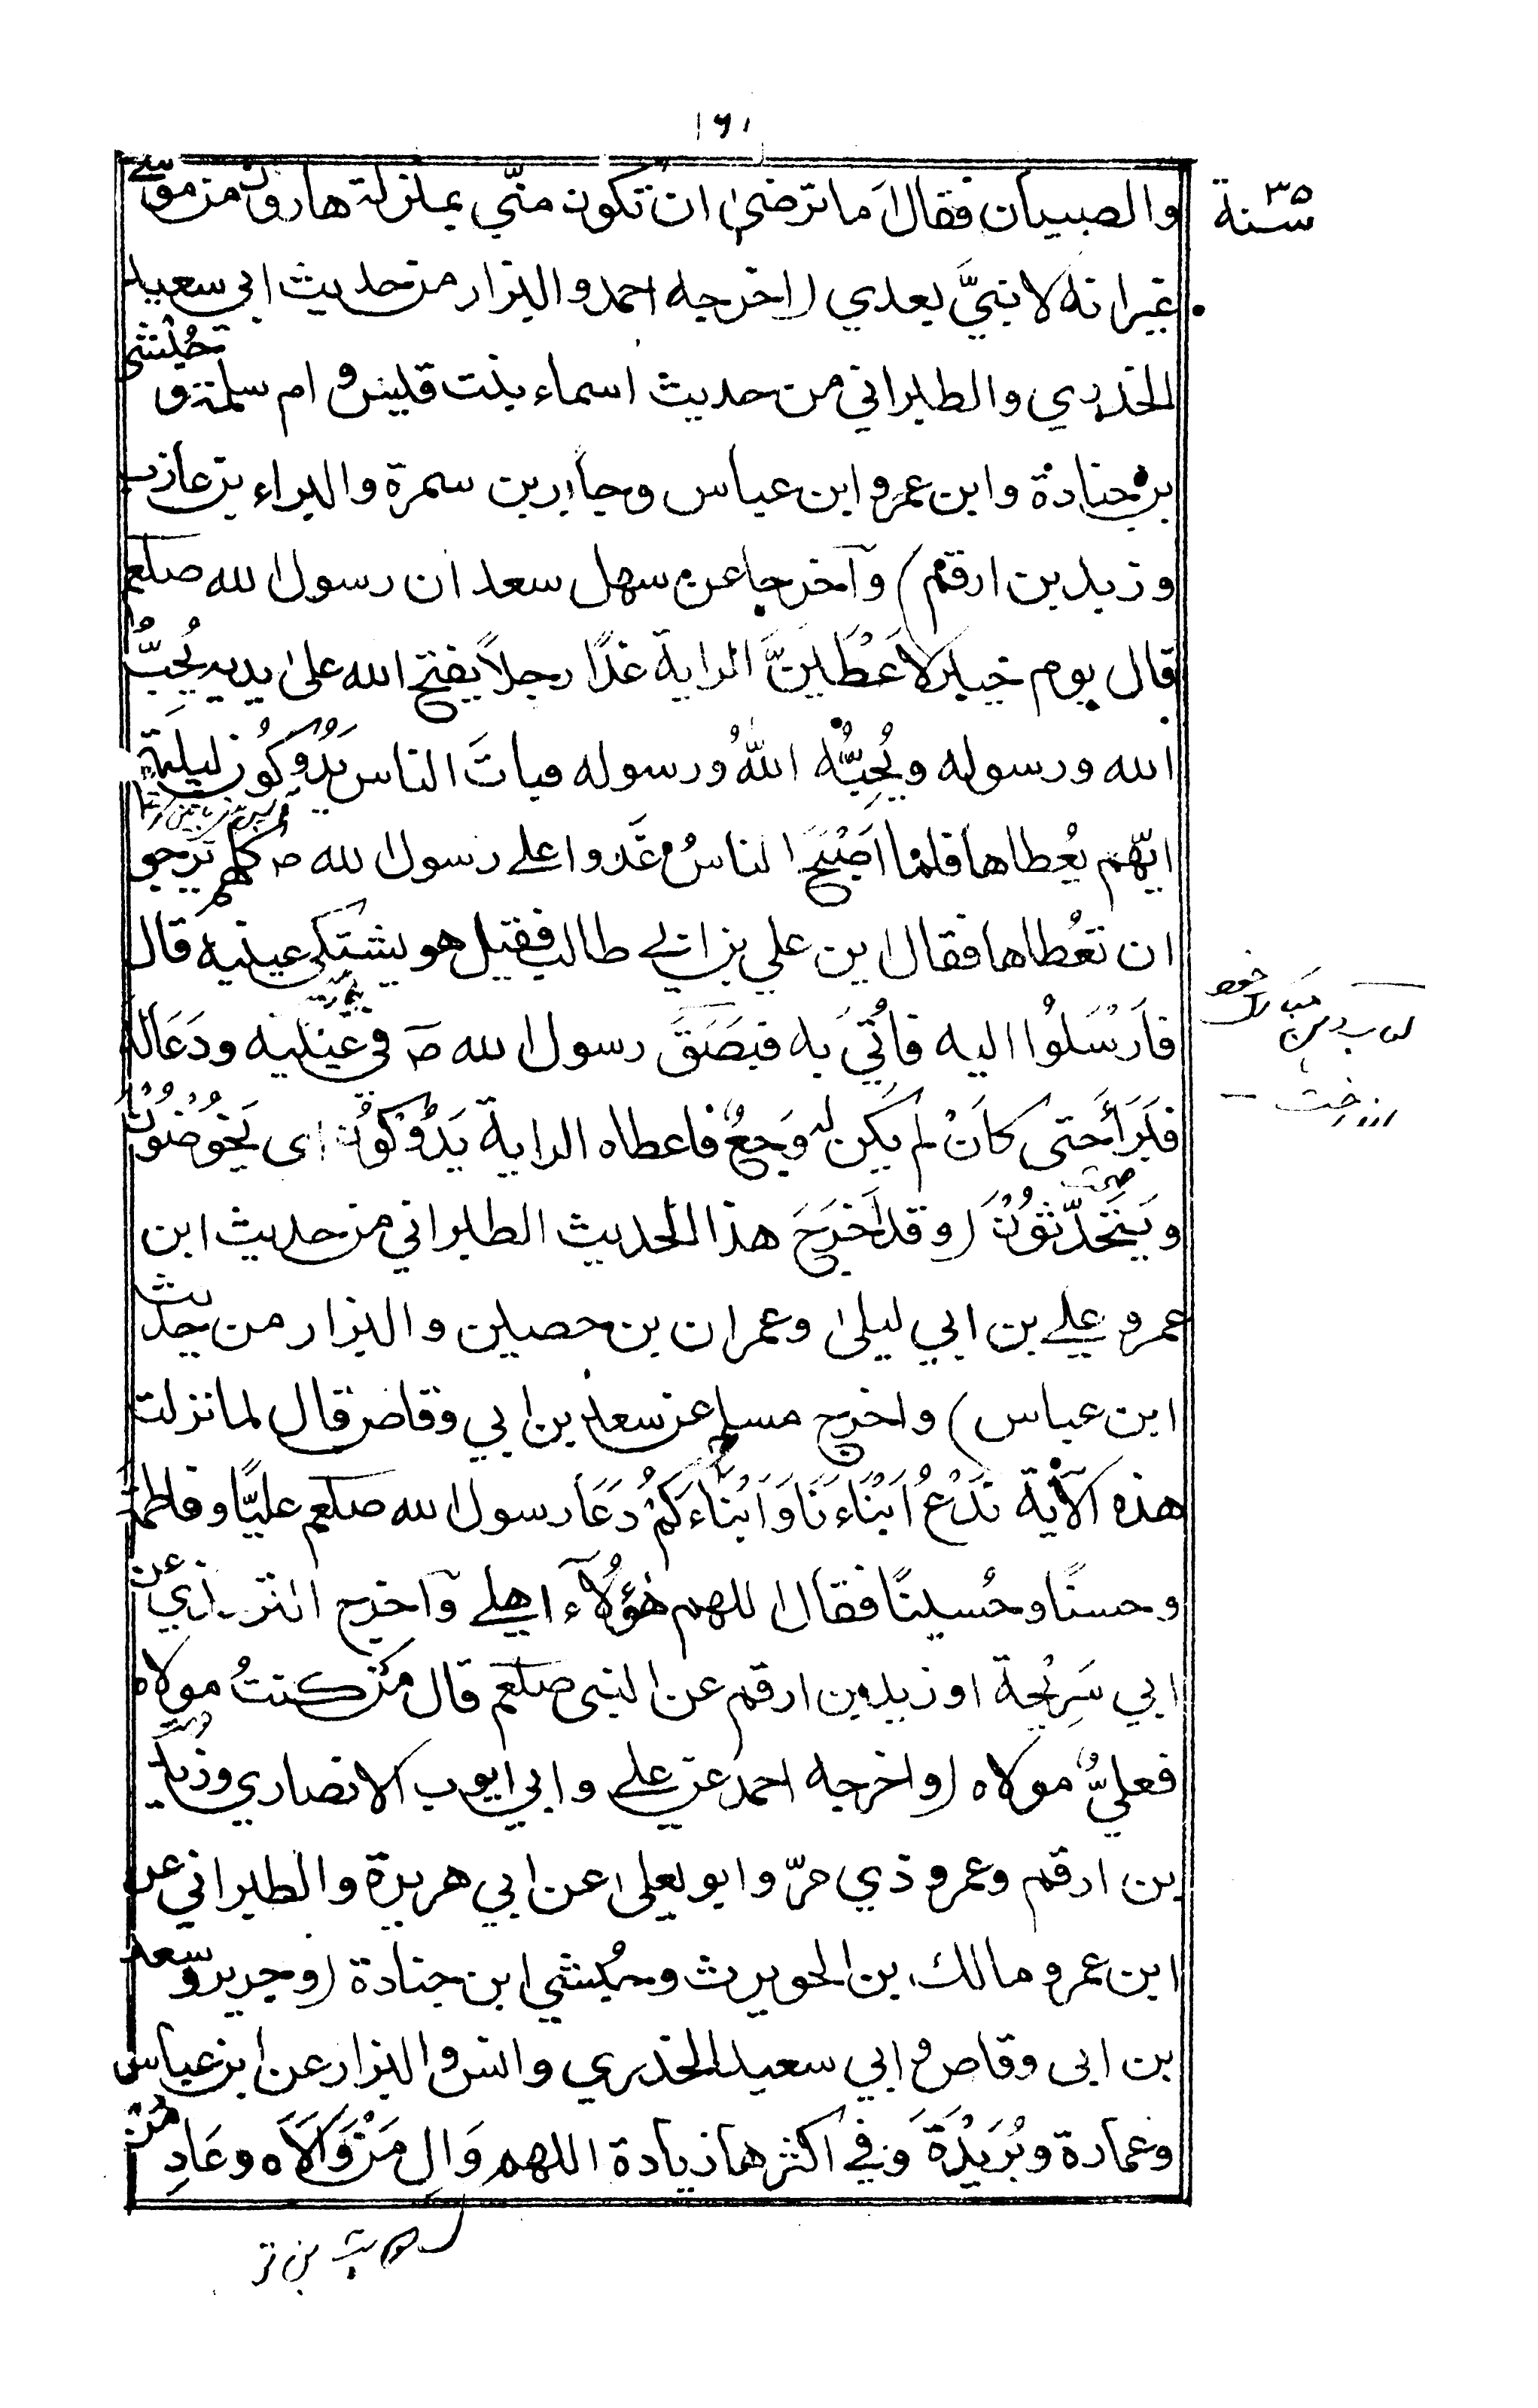 ١٦١
سنة ٣٥
والصبيان فقال اَما ترضىٰ ان تكون منّي بمنزلة هارون من موسىٰ
غير انه لا نبيَّ بعدي (اخرجه احمد والبزار من حديث ابي سعيد
الخدري والطبراني من حديث اسماء بنت قيس و ام سلمة و حُبْشي
بن جنادة وابن عمر و ابن عباس وجابر بن سمرة والبراء بن عازب
وزيد بن ارقم) وآخرجا عن سهل سعد ان رسول الله صلعم
قال يوم خيبر لاَعْطِيَنَّ الراية غدًا رجلاً يفتح الله علىٰ يديه يُحِبُّ
الله ورسوله ويُحِبُّه اللهُ ورسوله فباتَ الناس يَدُوكُون ليلة
ايّهم يُعطاها فلما اَصْبَحَ الناسُ غَدوا على رسول الله ص كلهم ترجو
ان تعُطاها فقال اين علي بن ابي طالب فقيل هو يشتكي عينيه قال
فاَرْسَلُوا اليه فاُتي به فبَصَقَ رسول الله ص في عَينيه ودَعَالهُ
فبَرَأَ حتى كاَنْ لم يكن له وَجعٌ فاعطاه الراية يَدُوْكُوْنَ اى يَخُوْضُوْنَ
ويَتَحَدّثوْنَ (وقد اَخْرَجَ هذا الحديث الطبراني من حديث ابن
عمر و علي بن ابي ليلىٰ وعمران بن حصين والبزار من حديث
ابن عباس) واخرج مسلم عن سعد بن ابي وقاص قال لما نزلت
هذه الآية نَدْعُ اَبْنَاءَنَا وَاَبْنَاءَكُمْ دَعَا رسول الله صلعم عليًّا وفاطمة
وحسنًا وحُسينًا فقال اللهم هٰؤُلآء اهلي وآخرج الترمذي عن
ابي سَرِيْحة او زيد بن ارقم عن النبى صلعم قال مَن كنتُ مولاه
فعليٌّ مولاه (واخرجه احمد عن علي وابي ايوب الانصاري وزيد
بن ارقم وعمرو ذي مرّ وابو يعلى عن ابي هريرة والطبراني عن
ابن عمر و مالك بن الحويرث وحُبشي ابن جنادة (وجرير وسعد
بن ابى وقاص و ابي سعيد الخدري وانس و البزار عن ابن عباس
وعمارة وبُرَيْدَةَ وَفي اكثرها زيادة اللهم وَالِ مَنْ وَالَاه وعَادِ مَنْ